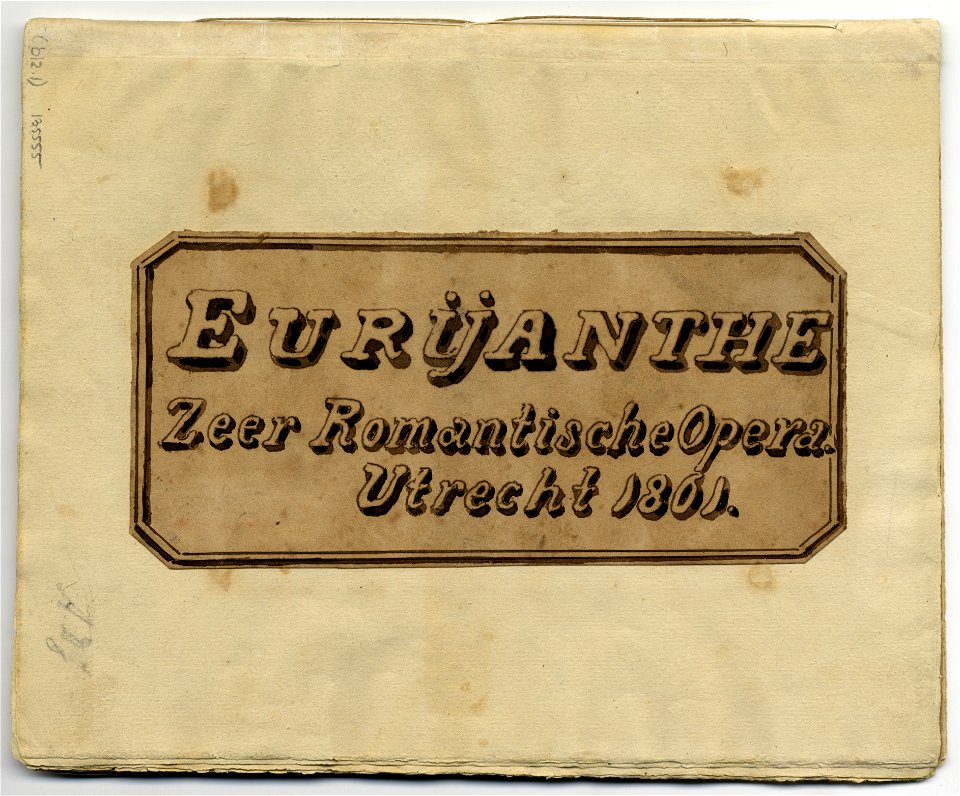 EURIJANTHE
Zeer Romantische Opera.
Utrecht 1801.
135555